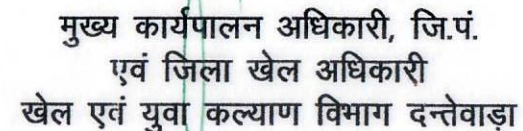 मुख्य कार्यपालन अधिकारी, जि.पं.
एवं जिला खेल अधिकारी
खेल एवं युवा कल्याण विभाग दन्तेवाड़ा